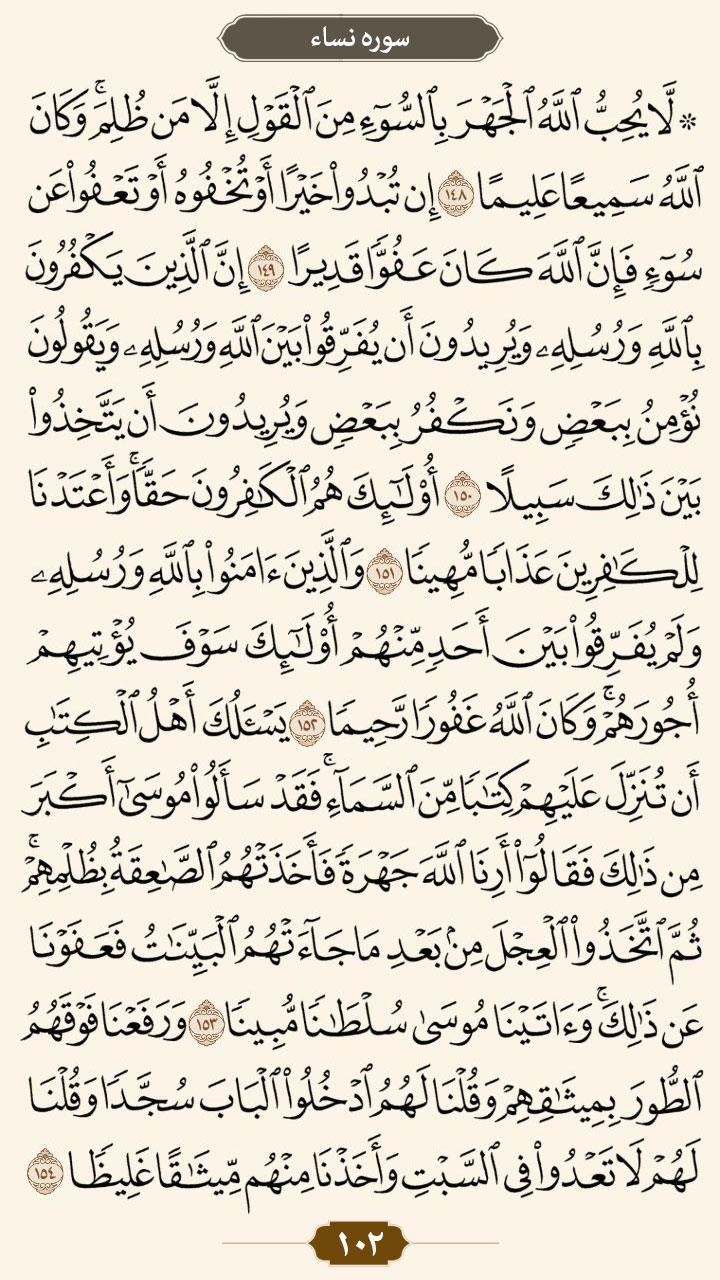 سوره نساء
۞ لَّا يُحِبُّ ٱللَّهُ ٱلۡجَهۡرَ بِٱلسُّوٓءِ مِنَ ٱلۡقَوۡلِ إِلَّا مَن ظُلِمَۚ وَكَانَ
ٱللَّهُ سَمِيعًا عَلِيمًا ١٤٨ إِن تُبۡدُواْ خَيۡرًا أَوۡ تُخۡفُوهُ أَوۡ تَعۡفُواْ عَن
سُوٓءٖ فَإِنَّ ٱللَّهَ كَانَ عَفُوّٗا قَدِيرًا ١٤٩ إِنَّ ٱلَّذِينَ يَكۡفُرُونَ
بِٱللَّهِ وَرُسُلِهِۦ وَيُرِيدُونَ أَن يُفَرِّقُواْ بَيۡنَ ٱللَّهِ وَرُسُلِهِۦ وَيَقُولُونَ
نُؤۡمِنُ بِبَعۡضٖ وَنَكۡفُرُ بِبَعۡضٖ وَيُرِيدُونَ أَن يَتَّخِذُواْ
بَيۡنَ ذَٰلِكَ سَبِيلًا ١٥٠ أُوْلَٰٓئِكَ هُمُ ٱلۡكَٰفِرُونَ حَقّٗاۚ وَأَعۡتَدۡنَا
لِلۡكَٰفِرِينَ عَذَابٗا مُّهِينٗا ١٥١ وَٱلَّذِينَ ءَامَنُواْ بِٱللَّهِ وَرُسُلِهِۦ
وَلَمۡ يُفَرِّقُواْ بَيۡنَ أَحَدٖ مِّنۡهُمۡ أُوْلَٰٓئِكَ سَوۡفَ يُؤۡتِيهِمۡ
أُجُورَهُمۡۚ وَكَانَ ٱللَّهُ غَفُورٗا رَّحِيمٗا ١٥٢ يَسۡـَٔلُكَ أَهۡلُ ٱلۡكِتَٰبِ
أَن تُنَزِّلَ عَلَيۡهِمۡ كِتَٰبٗا مِّنَ ٱلسَّمَآءِۚ فَقَدۡ سَأَلُواْ مُوسَىٰٓ أَكۡبَرَ
مِن ذَٰلِكَ فَقَالُوٓاْ أَرِنَا ٱللَّهَ جَهۡرَةٗ فَأَخَذَتۡهُمُ ٱلصَّٰعِقَةُ بِظُلۡمِهِمۡۚ
ثُمَّ ٱتَّخَذُواْ ٱلۡعِجۡلَ مِنۢ بَعۡدِ مَا جَآءَتۡهُمُ ٱلۡبَيِّنَٰتُ فَعَفَوۡنَا
عَن ذَٰلِكَۚ وَءَاتَيۡنَا مُوسَىٰ سُلۡطَٰنٗا مُّبِينٗا ١٥٣ وَرَفَعۡنَا فَوۡقَهُمُ
ٱلطُّورَ بِمِيثَٰقِهِمۡ وَقُلۡنَا لَهُمُ ٱدۡخُلُواْ ٱلۡبَابَ سُجَّدٗا وَقُلۡنَا
لَهُمۡ لَا تَعۡدُواْ فِي ٱلسَّبۡتِ وَأَخَذۡنَا مِنۡهُم مِّيثَٰقًا غَلِيظٗا ١٥٤
١٠٢